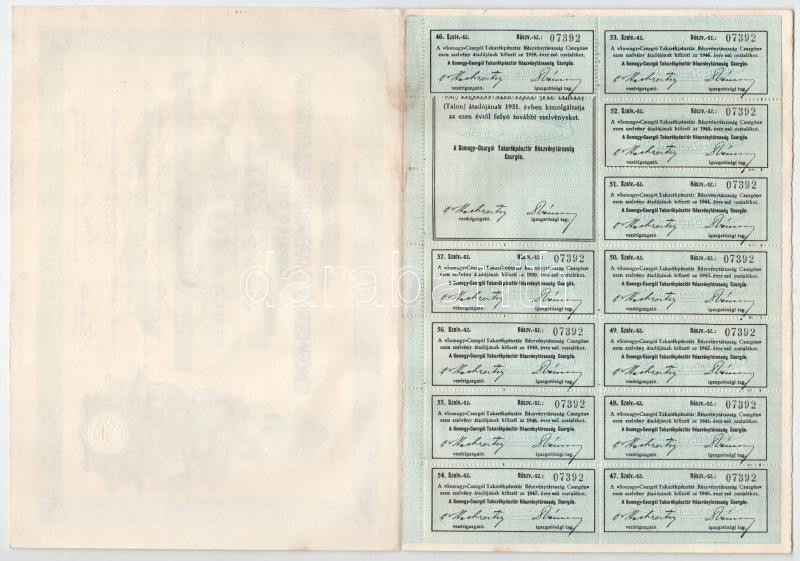 46. Szelv.-sz. Részv.-sz.: 07392
A »Somogy-Csurgói Takarékpénztár Részvénytársaság Csurgón«
ezen szelvény átadójának kifizeti az 1939. évre eső osztalékot.
A Somogy-Csurgói Takarékpénztár Részvénytársaság Csurgón.
vezérigazgató. igazgatósági tag.
(Talon) átadójának 1951. évben kiszolgáltatja
az ezen évtől folyó további szelvényeket.
A Somogy-Csurgói Takarékpénztár Részvénytársaság
Csurgón.
vezérigazgató. igazgatósági tag.
57. Szelv.-sz. Részv.-sz.: 07392
A »Somogy-Csurgói Takarékpénztár Részvénytársaság Csurgón«
ezen szelvény átadójának kifizeti az 1950. évre eső osztalékot.
A Somogy-Csurgói Takarékpénztár Részvénytársaság Csurgón.
vezérigazgató. igazgatósági tag.
56. Szelv.-sz. Részv.-sz.: 07392
A »Somogy-Csurgói Takarékpénztár Részvénytársaság Csurgón«
ezen szelvény átadójának kifizeti az 1949. évre eső osztalékot.
A Somogy-Csurgói Takarékpénztár Részvénytársaság Csurgón.
vezérigazgató. igazgatósági tag.
55. Szelv.-sz. Részv.-sz.: 07392
A »Somogy-Csurgói Takarékpénztár Részvénytársaság Csurgón«
ezen szelvény átadójának kifizeti az 1948. évre eső osztalékot.
A Somogy-Csurgói Takarékpénztár Részvénytársaság Csurgón.
vezérigazgató. igazgatósági tag.
54. Szelv.-sz. Részv.-sz.: 07392
A »Somogy-Csurgói Takarékpénztár Részvénytársaság Csurgón«
ezen szelvény átadójának kifizeti az 1947. évre eső osztalékot.
A Somogy-Csurgói Takarékpénztár Részvénytársaság Csurgón.
vezérigazgató. igazgatósági tag.
53. Szelv.-sz. Részv.-sz.: 07392
A »Somogy-Csurgói Takarékpénztár Részvénytársaság Csurgón«
ezen szelvény átadójának kifizeti az 1946. évre eső osztalékot.
A Somogy-Csurgói Takarékpénztár Részvénytársaság Csurgón.
vezérigazgató. igazgatósági tag.
52. Szelv.-sz. Részv.-sz.: 07392
A »Somogy-Csurgói Takarékpénztár Részvénytársaság Csurgón«
ezen szelvény átadójának kifizeti az 1945. évre eső osztalékot.
A Somogy-Csurgói Takarékpénztár Részvénytársaság Csurgón.
vezérigazgató. igazgatósági tag.
51. Szelv.-sz. Részv.-sz.: 07392
A »Somogy-Csurgói Takarékpénztár Részvénytársaság Csurgón«
ezen szelvény átadójának kifizeti az 1944. évre eső osztalékot.
A Somogy-Csurgói Takarékpénztár Részvénytársaság Csurgón.
vezérigazgató. igazgatósági tag.
50. Szelv.-sz. Részv.-sz.: 07392
A »Somogy-Csurgói Takarékpénztár Részvénytársaság Csurgón«
ezen szelvény átadójának kifizeti az 1943. évre eső osztalékot.
A Somogy-Csurgói Takarékpénztár Részvénytársaság Csurgón.
vezérigazgató. igazgatósági tag.
49. Szelv.-sz. Részv.-sz.: 07392
A »Somogy-Csurgói Takarékpénztár Részvénytársaság Csurgón«
ezen szelvény átadójának kifizeti az 1942. évre eső osztalékot.
A Somogy-Csurgói Takarékpénztár Részvénytársaság Csurgón.
vezérigazgató. igazgatósági tag.
48. Szelv.-sz. Részv.-sz.: 07392
A »Somogy-Csurgói Takarékpénztár Részvénytársaság Csurgón«
ezen szelvény átadójának kifizeti az 1941. évre eső osztalékot.
A Somogy-Csurgói Takarékpénztár Részvénytársaság Csurgón.
vezérigazgató. igazgatósági tag.
47. Szelv.-sz. Részv.-sz.: 07392
A »Somogy-Csurgói Takarékpénztár Részvénytársaság Csurgón«
ezen szelvény átadójának kifizeti az 1940. évre eső osztalékot.
A Somogy-Csurgói Takarékpénztár Részvénytársaság Csurgón.
vezérigazgató. igazgatósági tag.